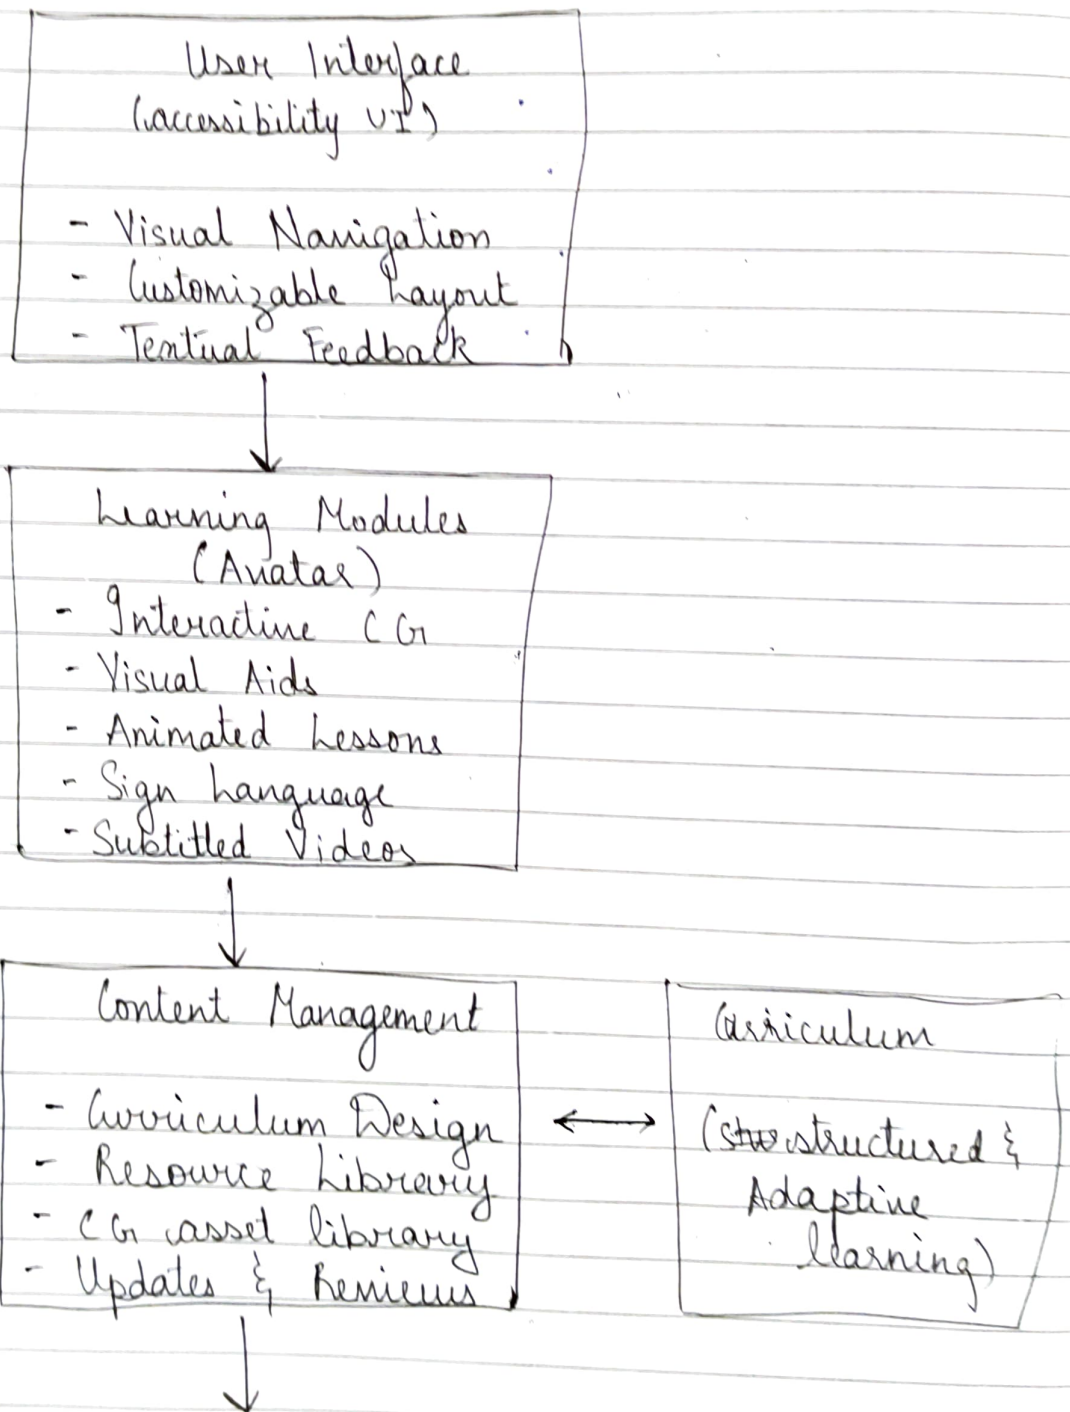 User Interface
(accessibility UI)
- Visual Navigation
- Customizable Layout
- Textual Feedback
Learning Modules
(Avatar)
- Interactive CG
- Visual Aids
- Animated Lessons
- Sign Language
- Subtitled Videos
Content Management
- Curriculum Design
- Resource Library
- CG asset library
- Updates & Reviews
Curriculum
(structured &
Adaptive
learning)